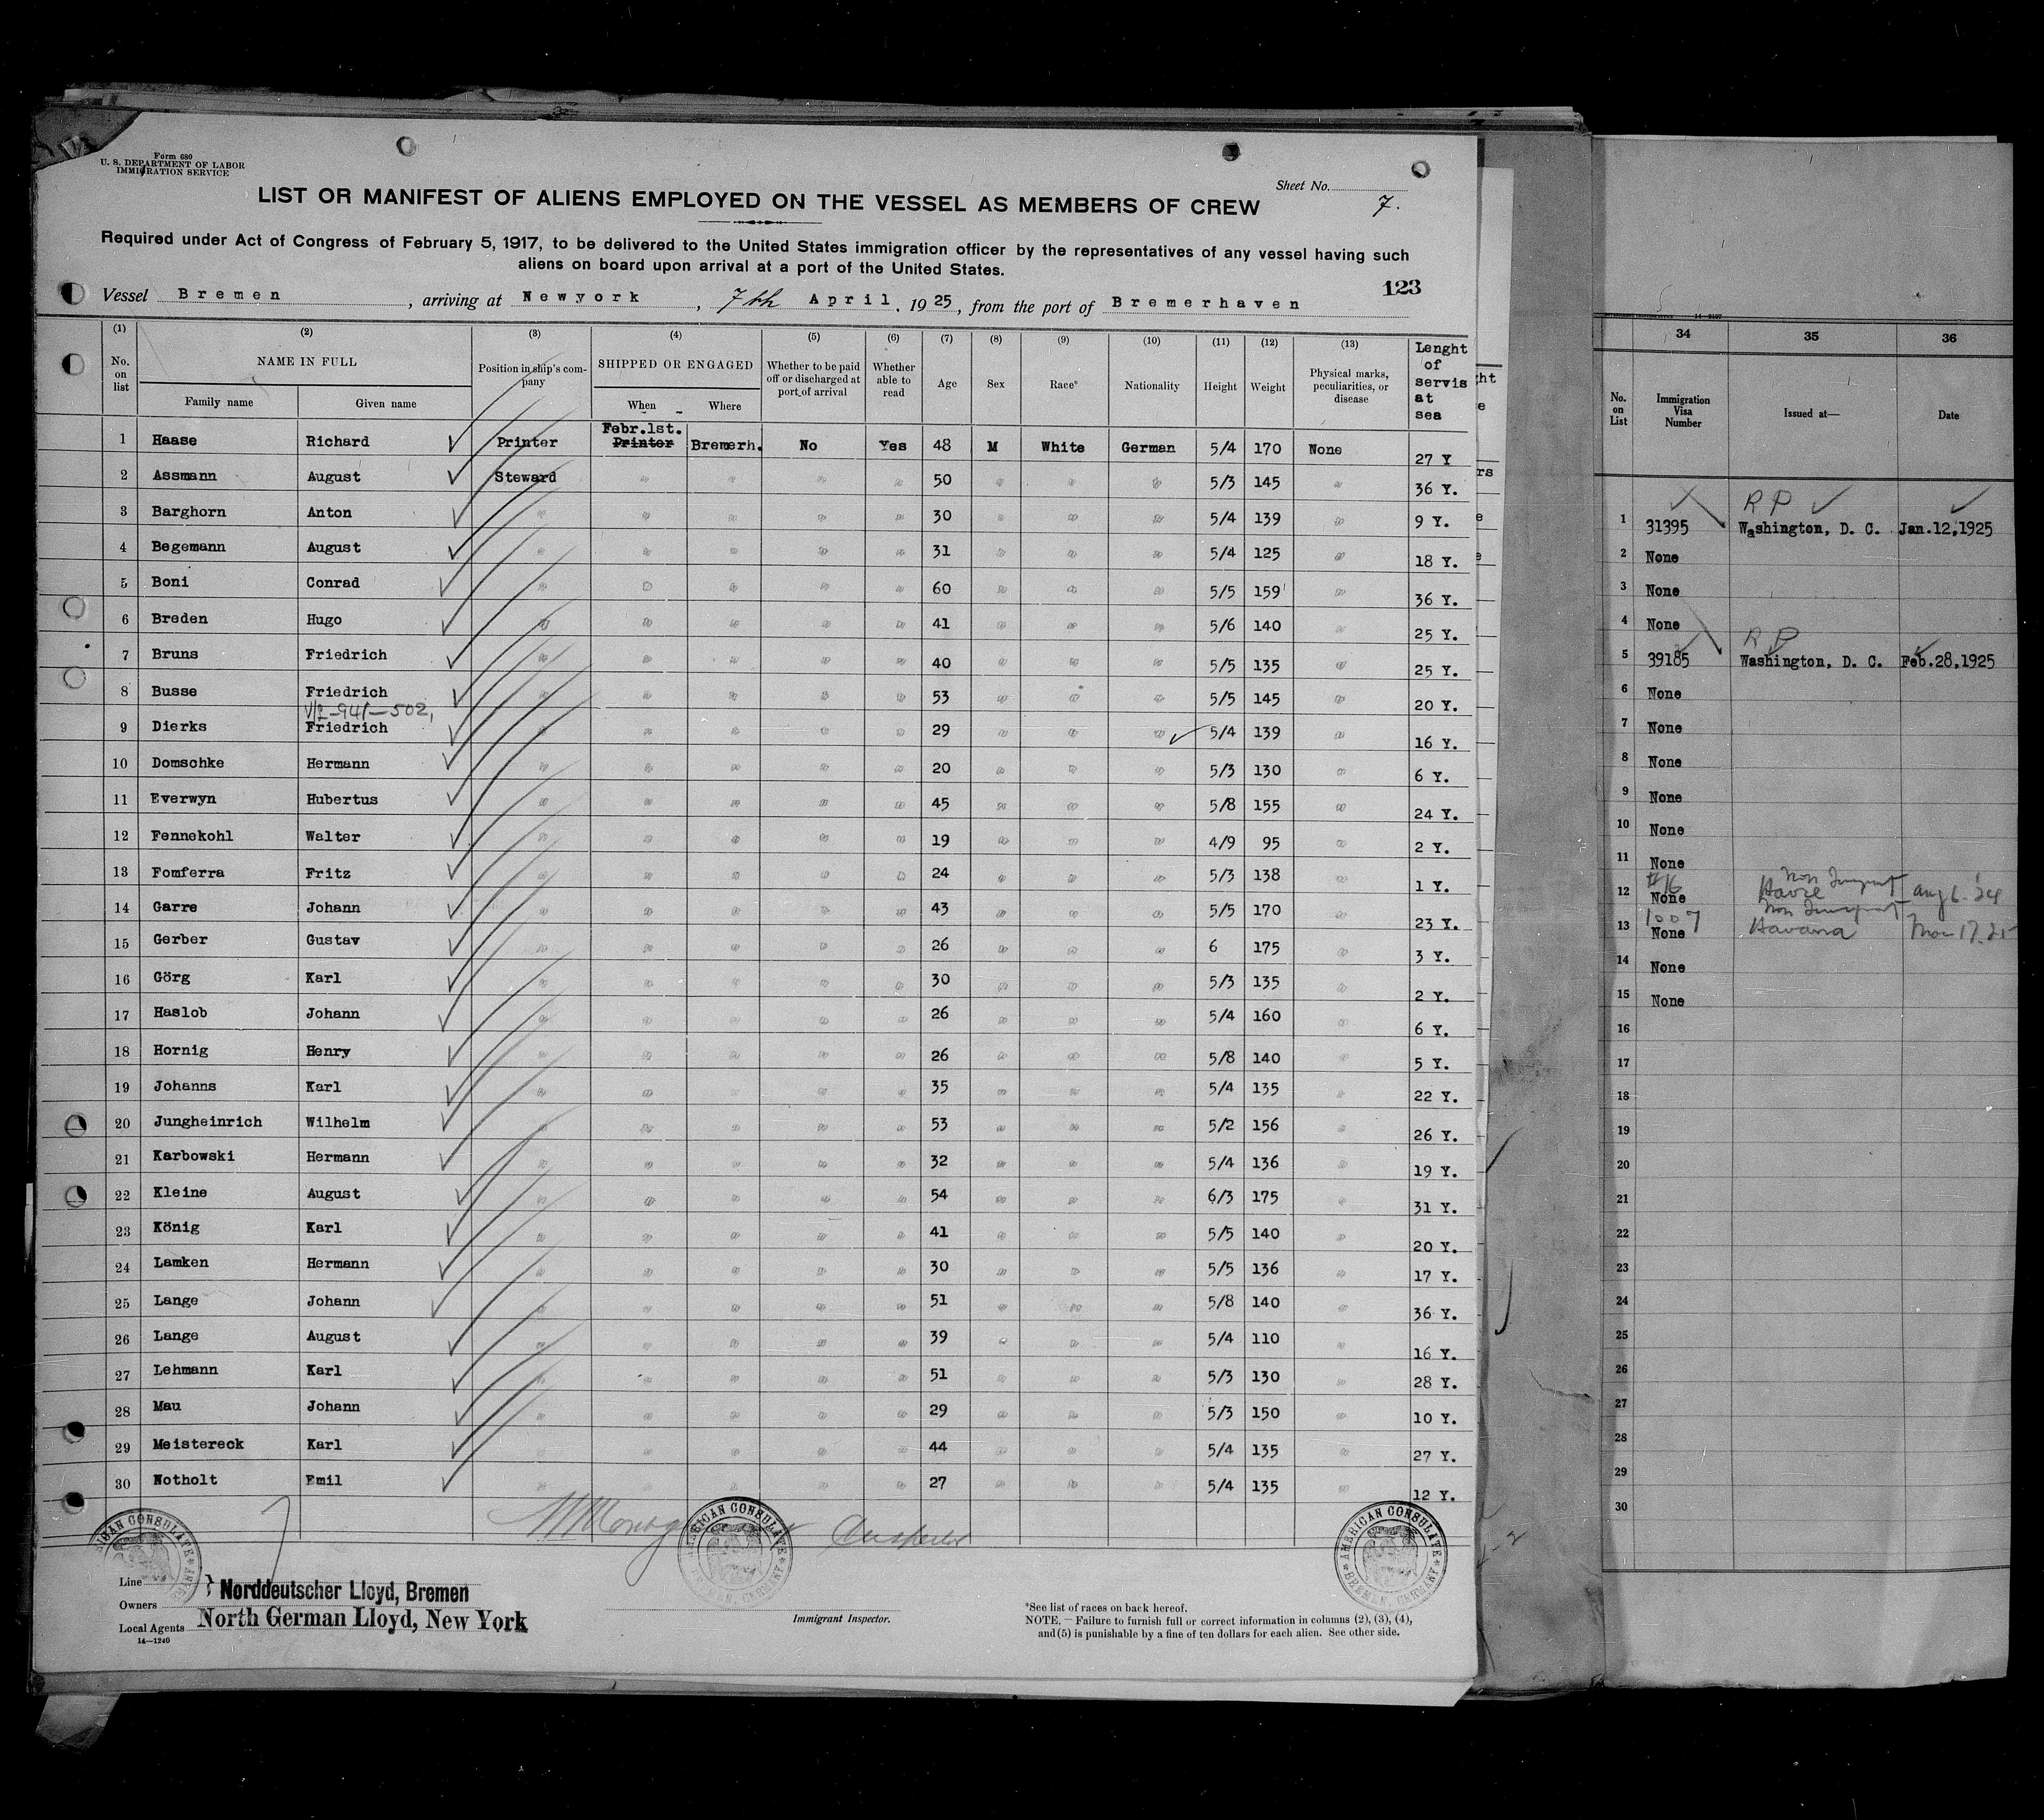 Form 680
U. S. DEPARTMENT OF LABOR
IMMIGRATION SERVICE
Sheet No. 7.
LIST OR MANIFEST OF ALIENS EMPLOYED ON THE VESSEL AS MEMBERS OF CREW
Required under Act of Congress of February 5, 1917, to be delivered to the United States immigration officer by the representatives of any vessel having such
aliens on board upon arrival at a port of the United States.
123
Vessel Bremen, arriving at Newyork, 7th April, 1925, from the port of Bremerhaven
(1) (2) (3) (4) (5) (6) (7) (8) (9) (10) (11) (12) (13)
No. on list NAME IN FULL Family name Given name Position in ship's company SHIPPED OR ENGAGED When Where Whether to be paid off or discharged at port of arrival Whether able to read Age Sex Race* Nationality Height Weight Physical marks, peculiarities, or disease Lenght of servis at sea
Febr.1st.
1 Haase Richard Printer Printer Bremerh. No Yes 48 M White German 5/4 170 None 27 Y
2 Assmann August Steward " " " " 50 " " " 5/3 145 " 36 Y.
3 Barghorn Anton " " " " " 30 " " " 5/4 139 " 9 Y.
4 Begemann August " " " " " 31 " " " 5/4 125 " 18 Y.
5 Boni Conrad " " " " " 60 " " " 5/5 159 " 36 Y.
6 Breden Hugo " " " " " 41 " " " 5/6 140 " 25 Y.
7 Bruns Friedrich " " " " " 40 " " " 5/5 135 " 25 Y.
8 Busse Friedrich " " " " " 53 " " " 5/5 145 " 20 Y.
941-502,
9 Dierks Friedrich " " " " " 29 " " " 5/4 139 " 16 Y.
10 Domschke Hermann " " " " " 20 " " " 5/3 130 " 6 Y.
11 Everwyn Hubertus " " " " " 45 " " " 5/8 155 " 24 Y.
12 Fennekohl Walter " " " " " 19 " " " 4/9 95 " 2 Y.
13 Fomferra Fritz " " " " " 24 " " " 5/3 138 " 1 Y.
14 Garre Johann " " " " " 43 " " " 5/5 170 " 23 Y.
15 Gerber Gustav " " " " " 26 " " " 6 175 " 3 Y.
16 Görg Karl " " " " " 30 " " " 5/3 135 " 2 Y.
17 Haslob Johann " " " " " 26 " " " 5/4 160 " 6 Y.
18 Hornig Henry " " " " " 26 " " " 5/8 140 " 5 Y.
19 Johanns Karl " " " " " 35 " " " 5/4 135 " 22 Y.
20 Jungheinrich Wilhelm " " " " " 53 " " " 5/2 156 " 26 Y.
21 Karbowski Hermann " " " " " 32 " " " 5/4 136 " 19 Y.
22 Kleine August " " " " " 54 " " " 6/3 175 " 31 Y.
23 König Karl " " " " " 41 " " " 5/5 140 " 20 Y.
24 Lamken Hermann " " " " " 30 " " " 5/5 136 " 17 Y.
25 Lange Johann " " " " " 51 " " " 5/8 140 " 36 Y.
26 Lange August " " " " " 39 " " " 5/4 110 " 16 Y.
27 Lehmann Karl " " " " " 51 " " " 5/3 130 " 28 Y.
28 Mau Johann " " " " " 29 " " " 5/3 150 " 10 Y.
29 Meistereck Karl " " " " " 44 " " " 5/4 135 " 27 Y.
30 Notholt Emil " " " " " 27 " " " 5/4 135 " 12 Y.
AMERICAN CONSULATE
AMERICAN CONSULATE BREMEN, GERMANY
AMERICAN CONSULATE BREMEN, GERMANY
Line
Owners
Norddeutscher Lloyd, Bremen
Local Agents North German Lloyd, New York
14—1240
Immigrant Inspector.
*See list of races on back hereof.
NOTE. — Failure to furnish full or correct information in columns (2), (3), (4),
and (5) is punishable by a fine of ten dollars for each alien. See other side.
34 35 36
No. on List Immigration Visa Number Issued at— Date
R P
1 31395 Washington, D. C. Jan.12,1925
2 None
3 None
4 None
R P
5 39185 Washington, D. C. Feb.28,1925
6 None
7 None
8 None
9 None
10 None
11 None
#16 Havre Aug 6. '24
12 None
1007 Havana
13 None
14 None
15 None
16
17
18
19
20
21
22
23
24
25
26
27
28
29
30